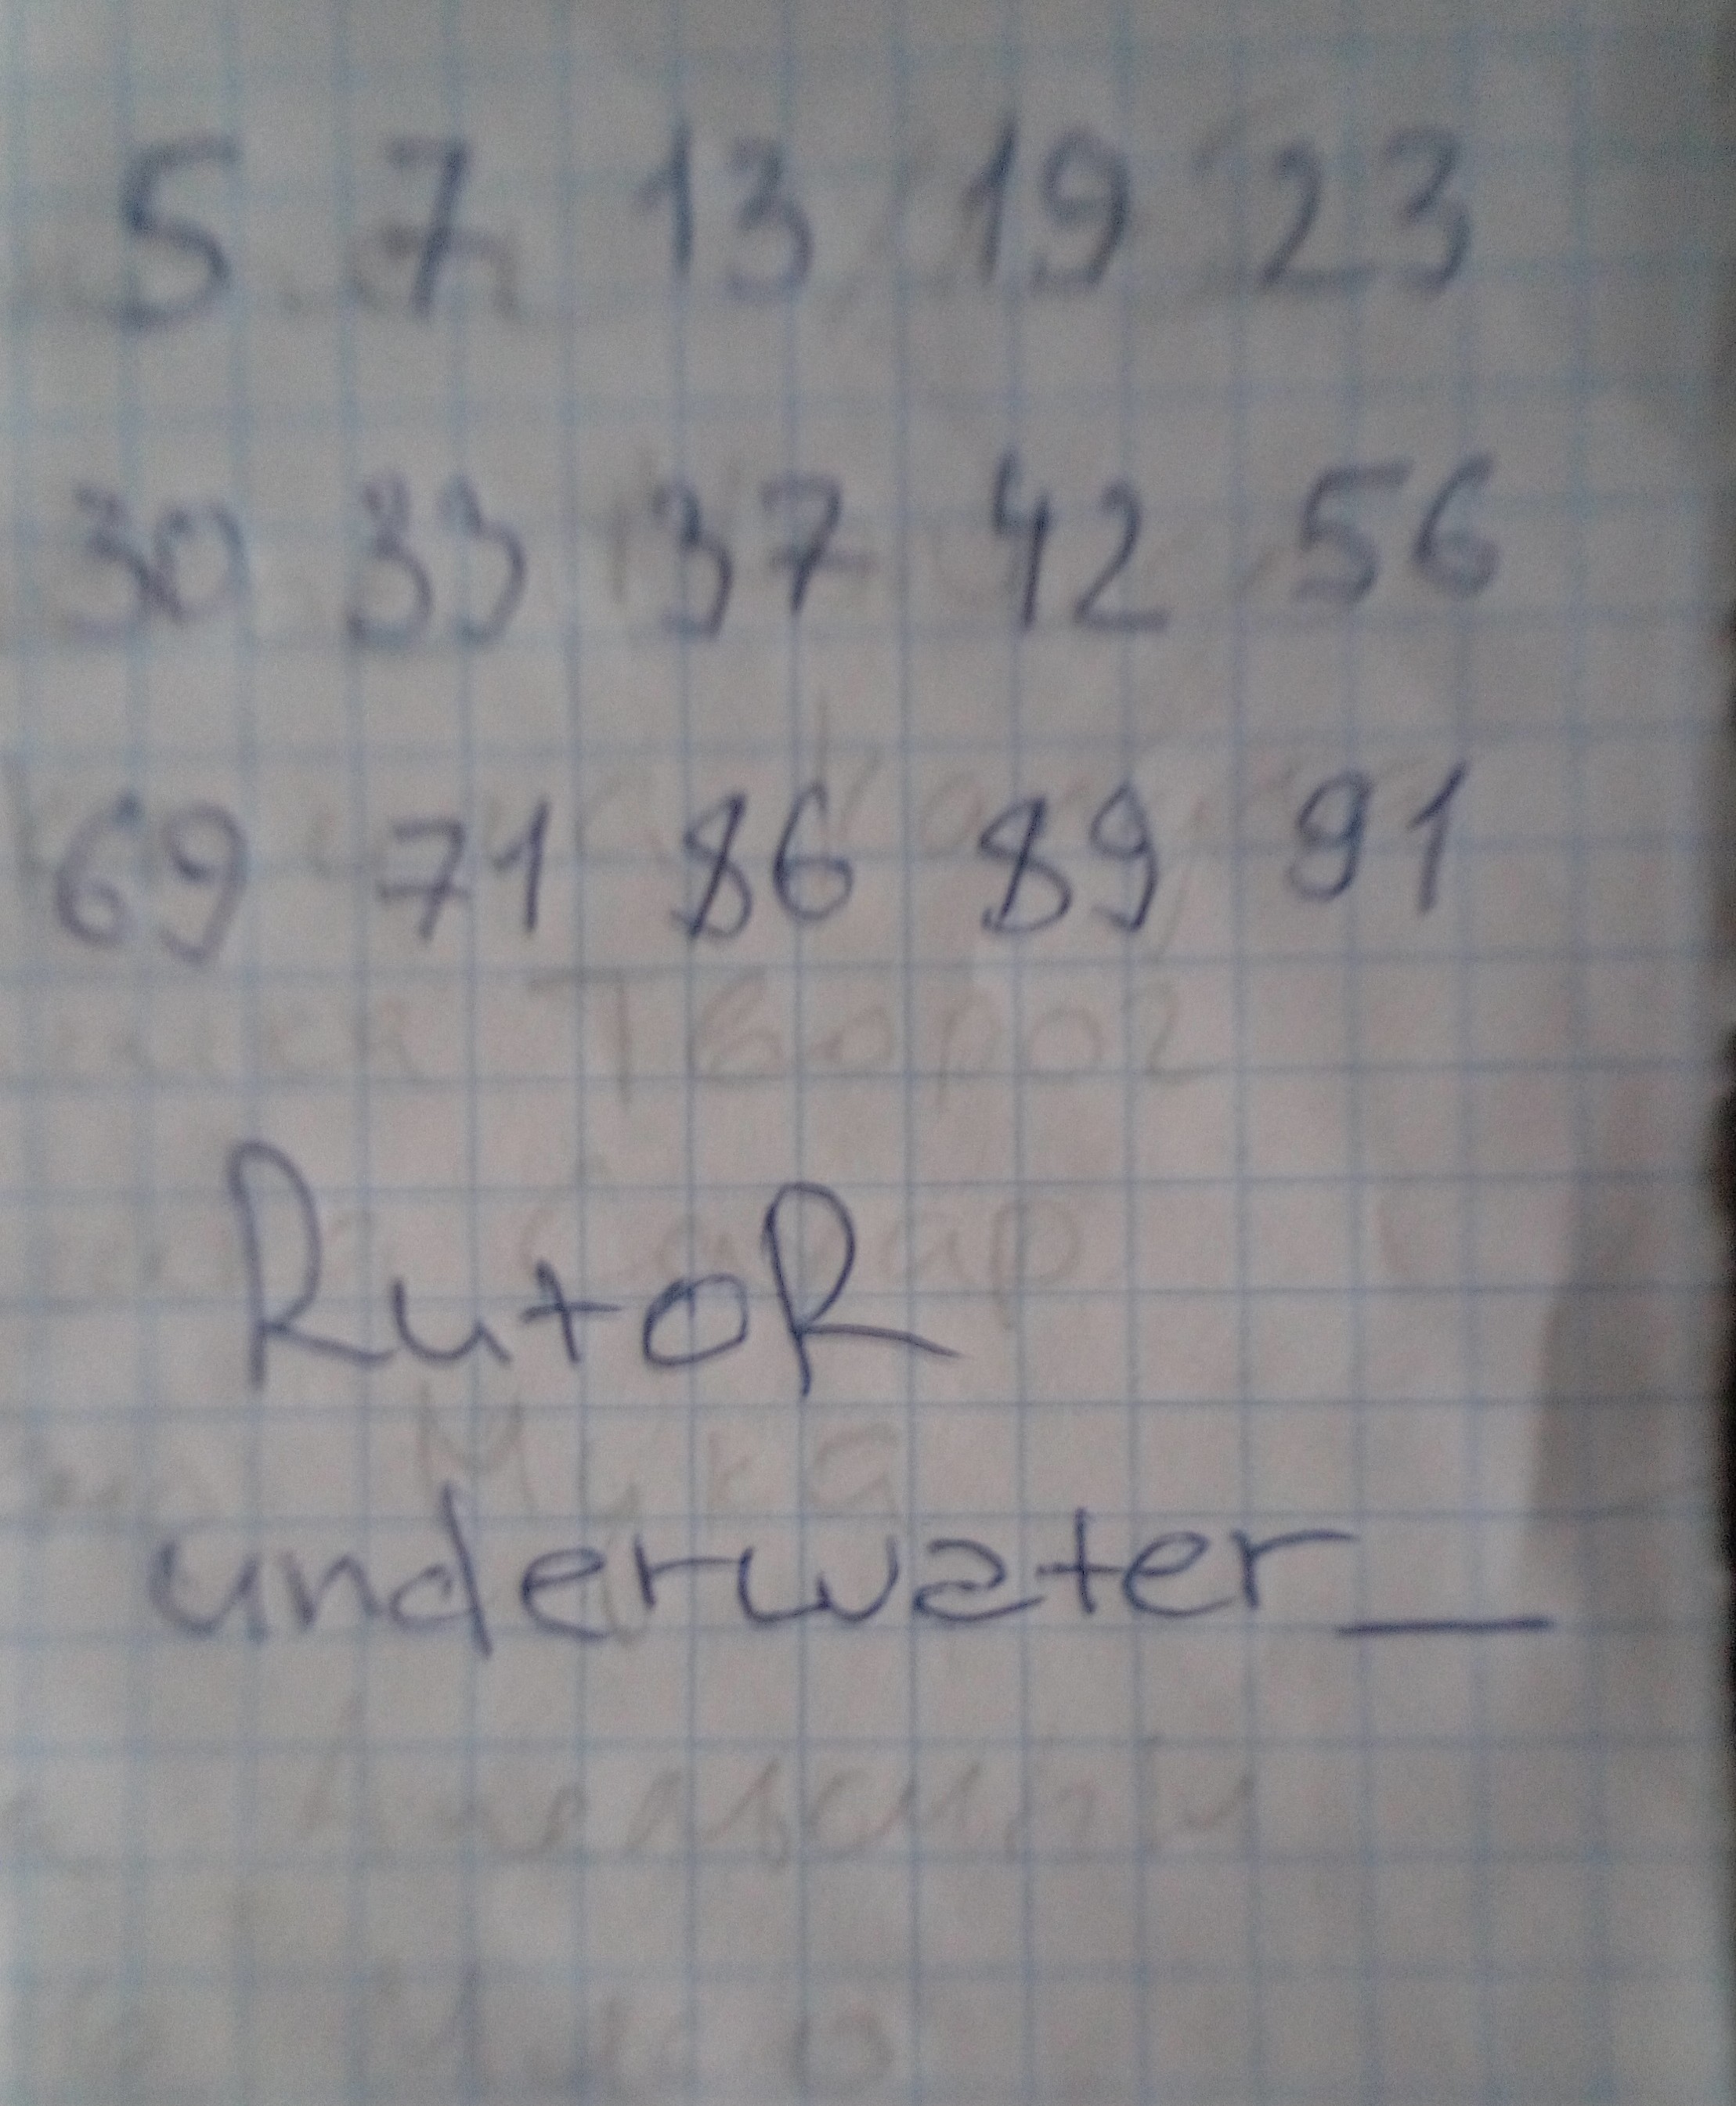 5 7 13 19 23
30 33 37 42 56
69 71 86 89 91
Творог
RutoR
Мука
underwater_